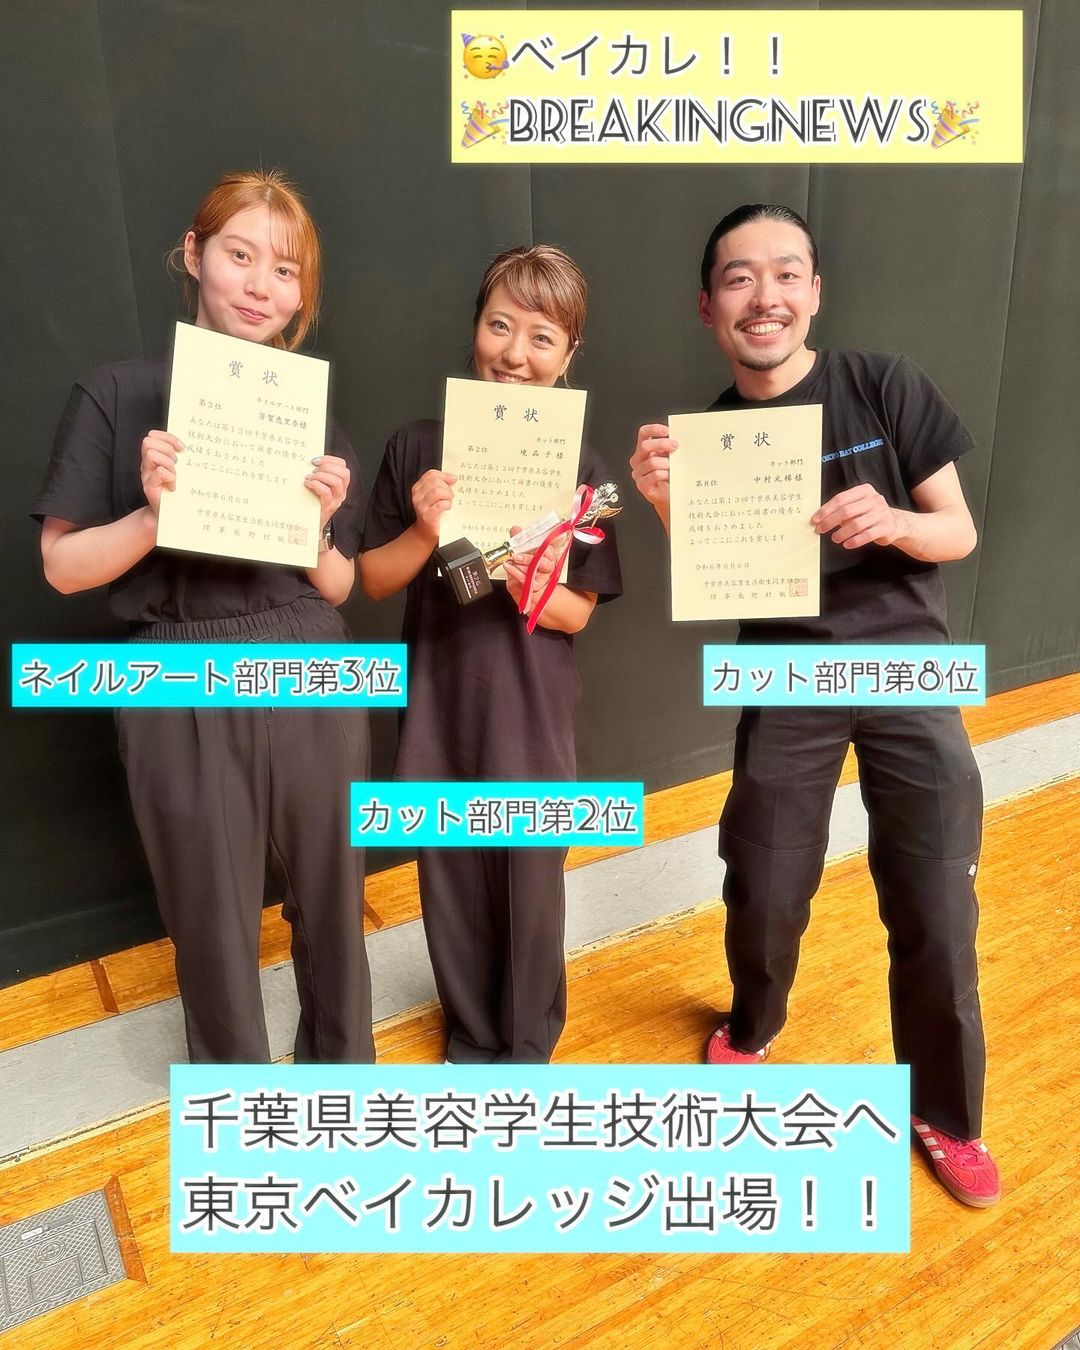 🥳ベイカレ！！
🎉BREAKINGNEWS🎉
賞状
ネイルアート部門
第3位
芳賀恵里奈様
あなたは第13回千葉県美容学生
技術大会において頭書の優秀な
成績をおさめました
よってここにこれを賞します
令和6年6月6日
千葉県美容業生活衛生同業組合
理事長 野村
賞状
カット部門
第2位
境晶子様
あなたは第13回千葉県美容学生
技術大会において頭書の優秀な
成績をおさめました
よってここにこれを賞します
令和6年6月6日
賞状
カット部門
第8位
中村元稀様
あなたは第13回千葉県美容学生
技術大会において頭書の優秀な
成績をおさめました
よってここにこれを賞します
令和6年6月6日
千葉県美容業生活衛生同業組合
理事長 野村
OKYO BAY COLLEGE
ネイルアート部門第3位
カット部門第8位
カット部門第2位
千葉県美容学生技術大会へ
東京ベイカレッジ出場！！